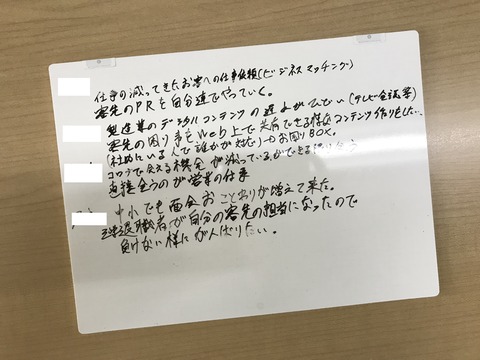 仕事の減ってきたお客への仕事依頼(ビジネスマッチング)
客先のPRを自分達でやっていく。
製造業のデジタルコンテンツの遅れがひどい(テレビ会議等)
客先の困り事をWeb上で共有できる様なコンテンツ作りをしたい…
(社内にいる人で誰かが対応)→お困りBOX。
コロナで会える機会が減っているができる限り会う
直接会うのが営業の仕事
中小でも面会おことわりが増えて来た。
退職者が自分の客先の担当になったので
負けない様にがんばりたい。